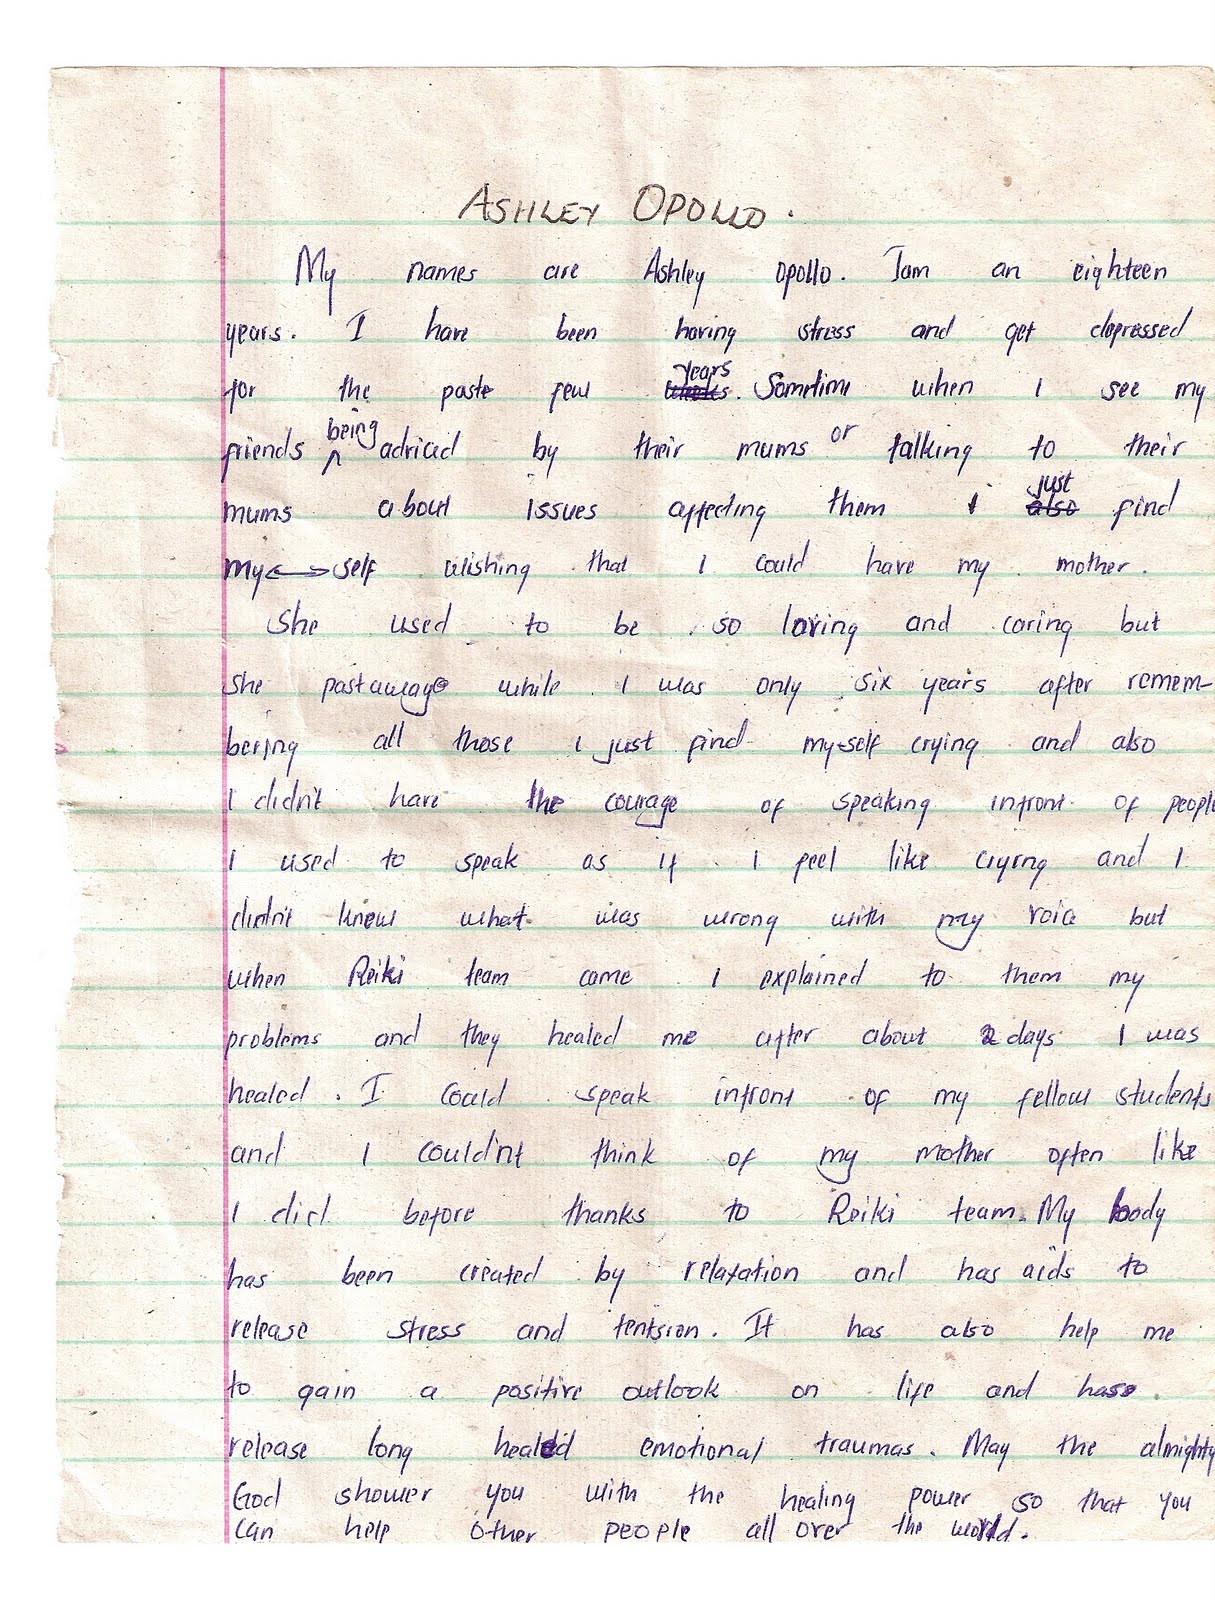 ASHLEY OPOLLO.
My names are Ashley opollo. Iam an eighteen
years. I have been having stress and get depressed
for the paste few weeks years. Sometime when I see my
friends being adviced by their mums or talking to their
mums about issues affecting them I also just find
my self wishing that I could have my mother.
She used to be so loving and caring but
she past away while I was only six years after remem-
bering all those I just find my-self crying and also
I didn't have the courage of speaking infront of people
I used to speak as if I feel like crying and I
didn't know what was wrong with my voice but
when Reiki team came I explained to them my
problems and they healed me after about 2 days I was
healed. I could speak infront of my fellow students
and I couldn't think of my mother often like
I did before thanks to Reiki team. My body
has been created by relaxation and has aids to
release stress and tentsion. It has also help me
to gain a positive outlook on life and has
release long healed emotional traumas. May the almighty
God shower you with the healing power so that you
can help other people all over the world.